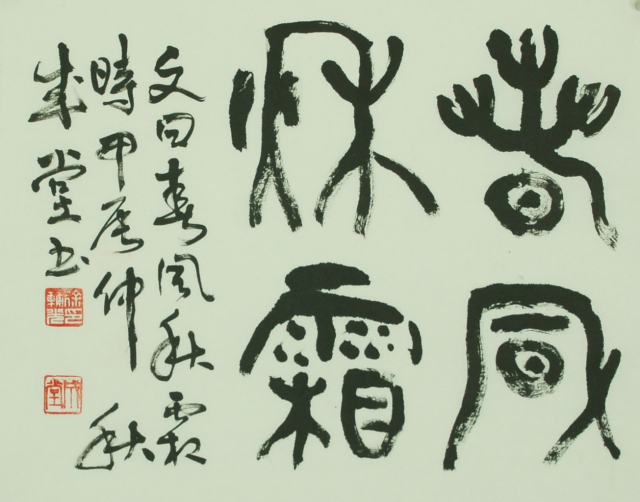 春風
秋霜
文曰春風秋霜
時甲辰仲秋
成堂书
成堂